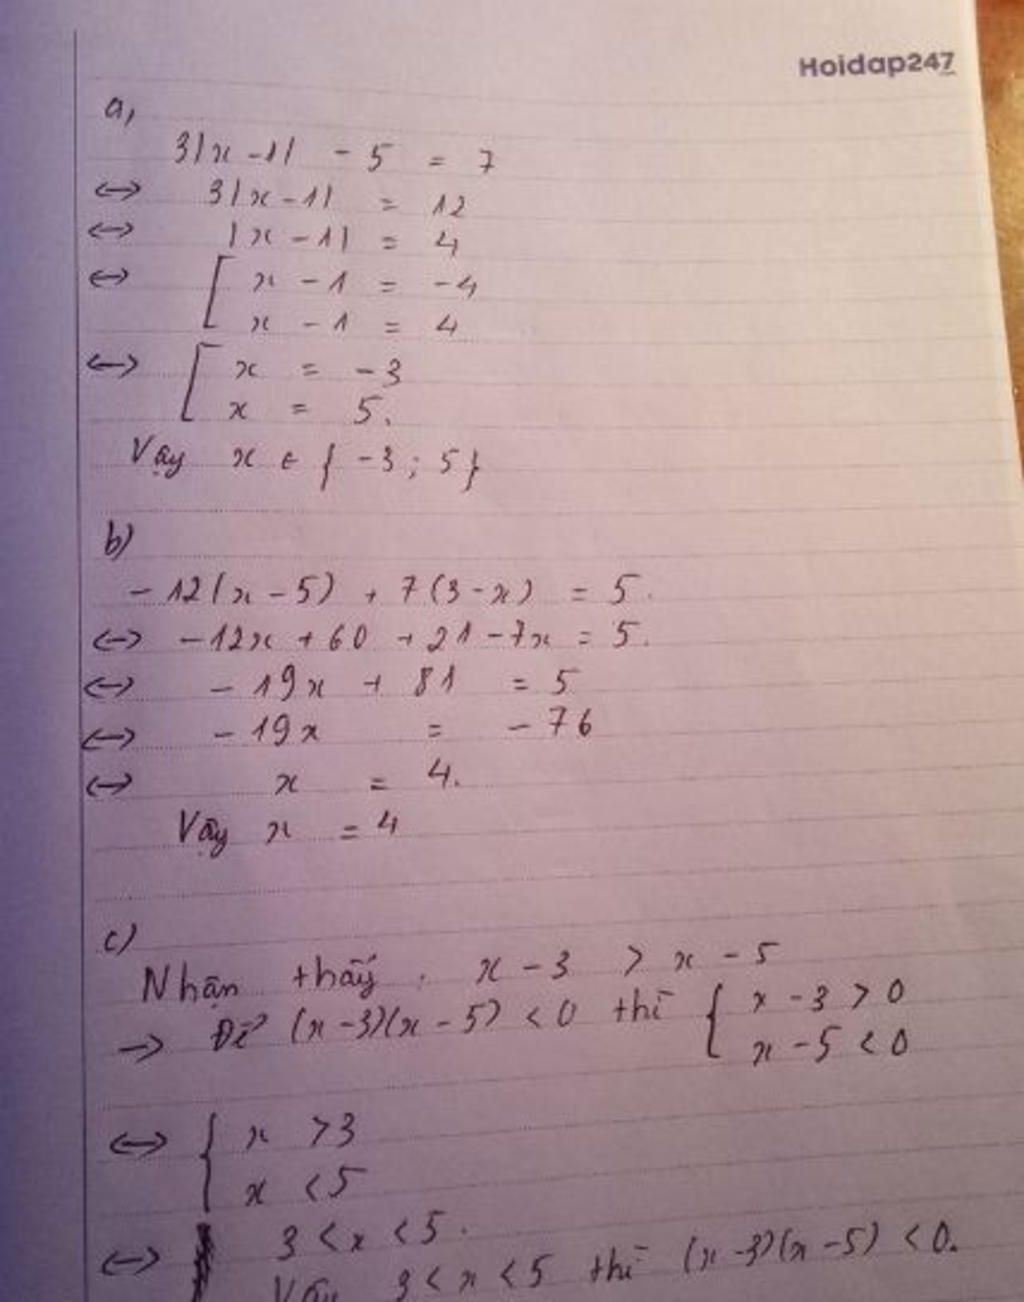 Hoidap247
a,
3|x - 1| - 5 = 7
<-> 3|x - 1| = 12
<-> |x - 1| = 4
<-> [ x - 1 = -4
x - 1 = 4
<-> [ x = -3
x = 5.
Vậy x ∈ { -3 ; 5 }
b)
- 12(x - 5) + 7(3 - x) = 5.
<-> -12x + 60 + 21 - 7x = 5.
<-> - 19x + 81 = 5
<-> - 19x = - 76
<-> x = 4.
Vậy x = 4
c)
Nhận thấy: x - 3 > x - 5
-> Để (x - 3)(x - 5) < 0 thì { x - 3 > 0
x - 5 < 0
<-> { x > 3
x < 5
<-> 3 < x < 5.
Vậy 3 < x < 5 thì (x - 3)(x - 5) < 0.